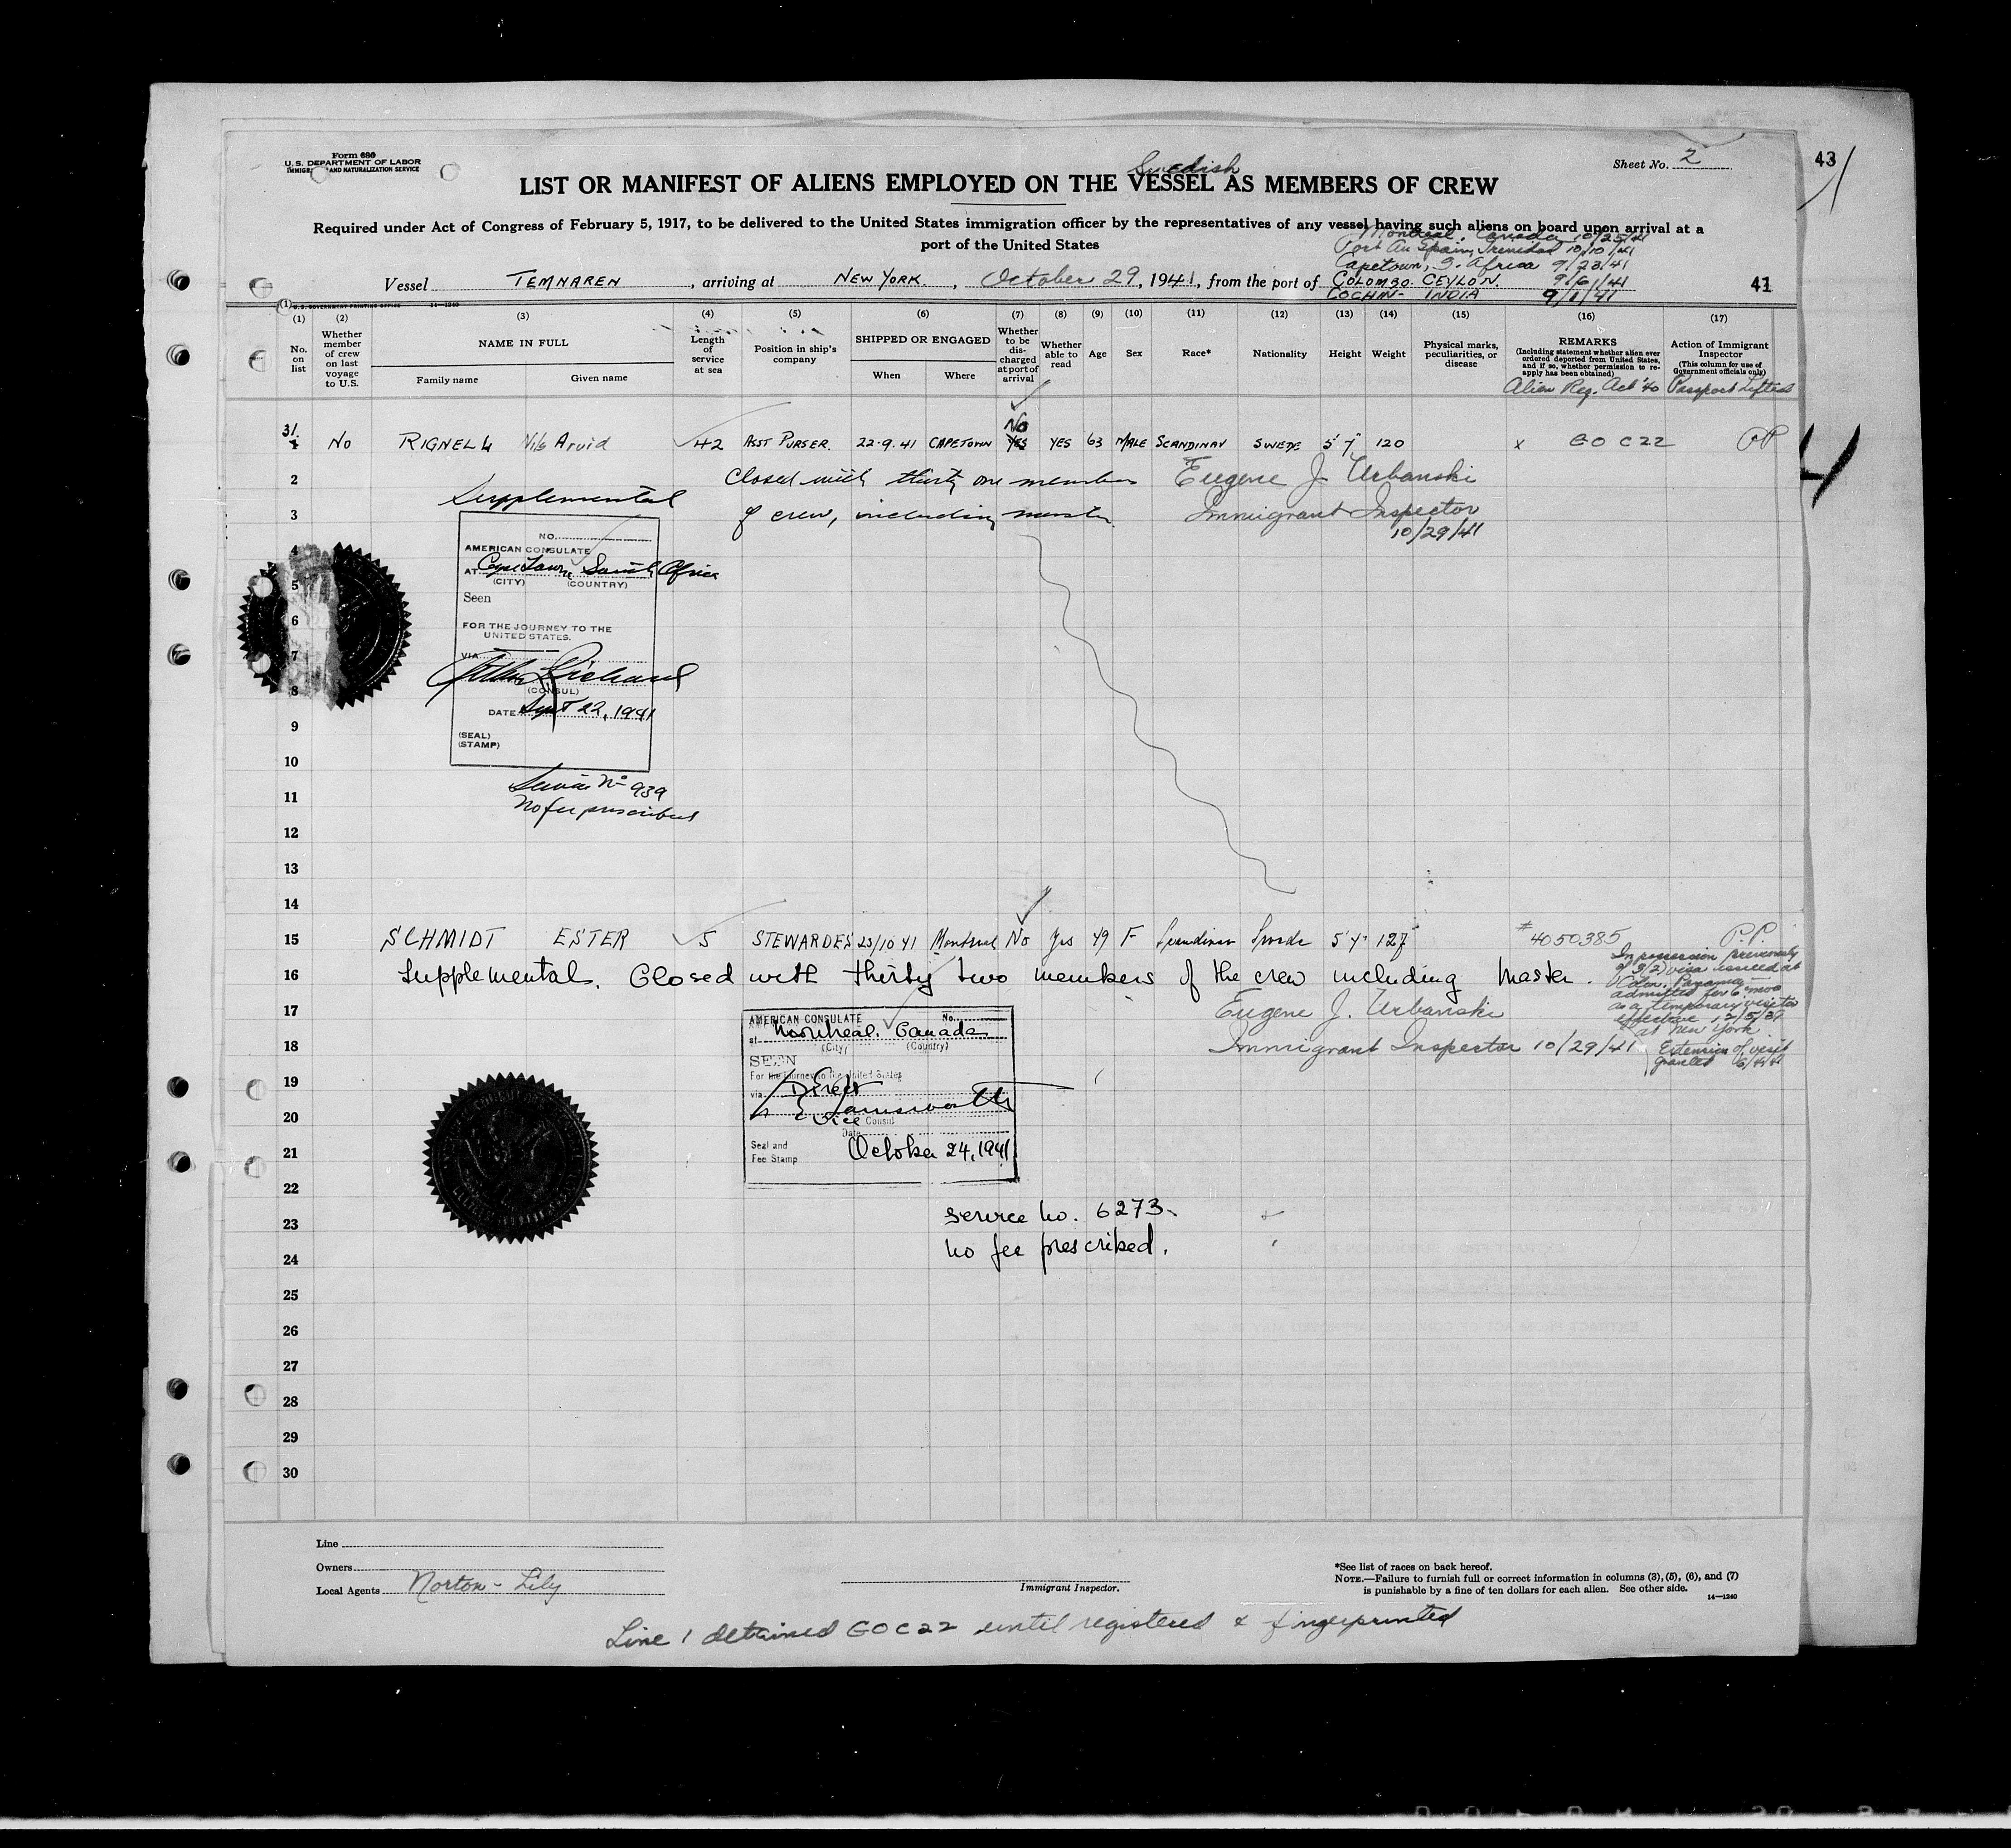 Form 680
U.S. DEPARTMENT OF LABOR
IMMIGRATION AND NATURALIZATION SERVICE
Sheet No. 2
43
Swedish
LIST OR MANIFEST OF ALIENS EMPLOYED ON THE VESSEL AS MEMBERS OF CREW
Required under Act of Congress of February 5, 1917, to be delivered to the United States immigration officer by the representatives of any vessel having such aliens on board upon arrival at a
port of the United States
Montreal, Canada 10/25/41
Port Au Spain, Trinidad 10/10/41
Capetown, S. Africa 9/23/41
Vessel TEMNAREN, arriving at NEW YORK., October 29, 1941, from the port of COLOMBO. CEYLON. 9/6/41
COCHIN- INDIA 9/1/41
41
U.S. GOVERNMENT PRINTING OFFICE 14—1240
(1) (2) (3) (4) (5) (6) (7) (8) (9) (10) (11) (12) (13) (14) (15) (16) (17)
No. on list
Whether member of crew on last voyage to U.S.
NAME IN FULL
Family name Given name
Length of service at sea
Position in ship's company
SHIPPED OR ENGAGED
When Where
Whether to be discharged at port of arrival
Whether able to read
Age
Sex
Race*
Nationality
Height
Weight
Physical marks, peculiarities, or disease
REMARKS
(Including statement whether alien ever ordered deported from United States, and if so, whether permission to reapply has been obtained)
Alien Reg. Act '40
Action of Immigrant Inspector
(This column for use of Government officials only)
Passport Lifted
No
31. 1 No RIGNELL Nils Arvid 42 ASST PURSER. 22-9.41 CAPETOWN YES YES 63 MALE SCANDINAV SWEDE 5' 7" 120 x GO C22 PP
2 Closed with thirty one members Eugene J. Urbanski
Supplemental
3 of crew, including master Immigrant Inspector
10/29/41
4
NO.
AMERICAN CONSULATE
AT Cape Town, South Africa
5 (CITY) (COUNTRY)
Seen
6
FOR THE JOURNEY TO THE
UNITED STATES.
7 VIA
8
(CONSUL)
9 DATE Sept 22, 1941
(SEAL)
(STAMP)
10
Service No 939
11 No fee prescribed
12
13
14
15 SCHMIDT ESTER 5 STEWARDES 23/10 41 Montreal No Yes 49 F Scandinav Swede 5' 4" 127 # 4050385 P.P.
16 Supplemental. Closed with thirty two members of the crew including Master.
In possession previously
of 3(2) visa issued at
Colon, Panama
admitted for 6 mos
as a temporary visitor
effective 12/5/39
at New York
Extension of visit
granted 6/4/41
17 Eugene J. Urbanski
18 Immigrant Inspector 10/29/41
AMERICAN CONSULATE No.
at Montreal, Canada
(City) (Country)
SEEN
For the journey to the United States
19 via Direct
20
Vice Consul
Date
21 Seal and
Fee Stamp
October 24, 1941
22
23 service no. 6273.
24 no fee prescribed.
25
26
27
28
29
30
Line
Owners
Local Agents Norton - Lily
Immigrant Inspector.
*See list of races on back hereof.
NOTE.—Failure to furnish full or correct information in columns (3), (5), (6), and (7)
is punishable by a fine of ten dollars for each alien. See other side.
14—1240
Line 1 detained GO C 22 until registered & fingerprinted
4